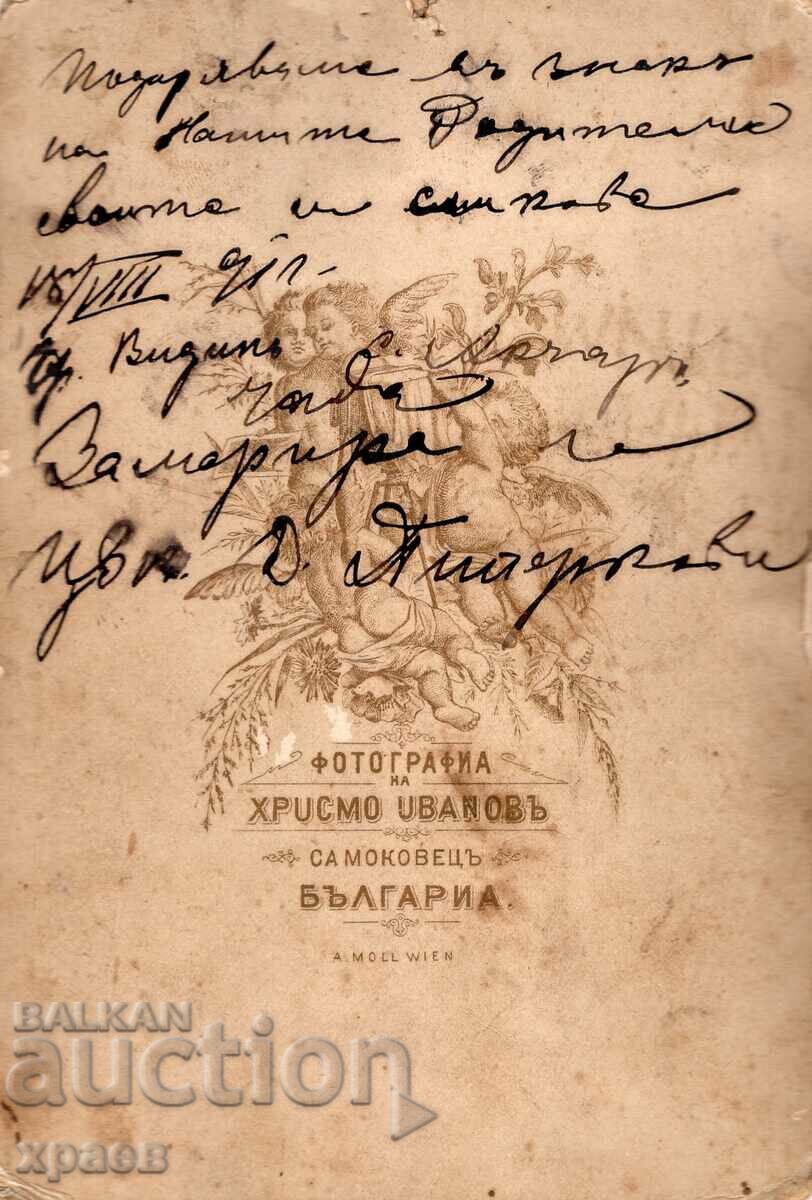 Подарявъме въ знакъ
на Нашите Родители
своите си
18/VIII 91 г.
гр. Видинъ с. Арчаръ
чада
и
Цвѣт. Д.
ФОТОГРАФИА
НА
ХРИСМО ИВАНОВЪ
САМОКОВЕЦЪ
БЪЛГАРИА.
A. MOLL WIEN
BALKAN
auction
храев